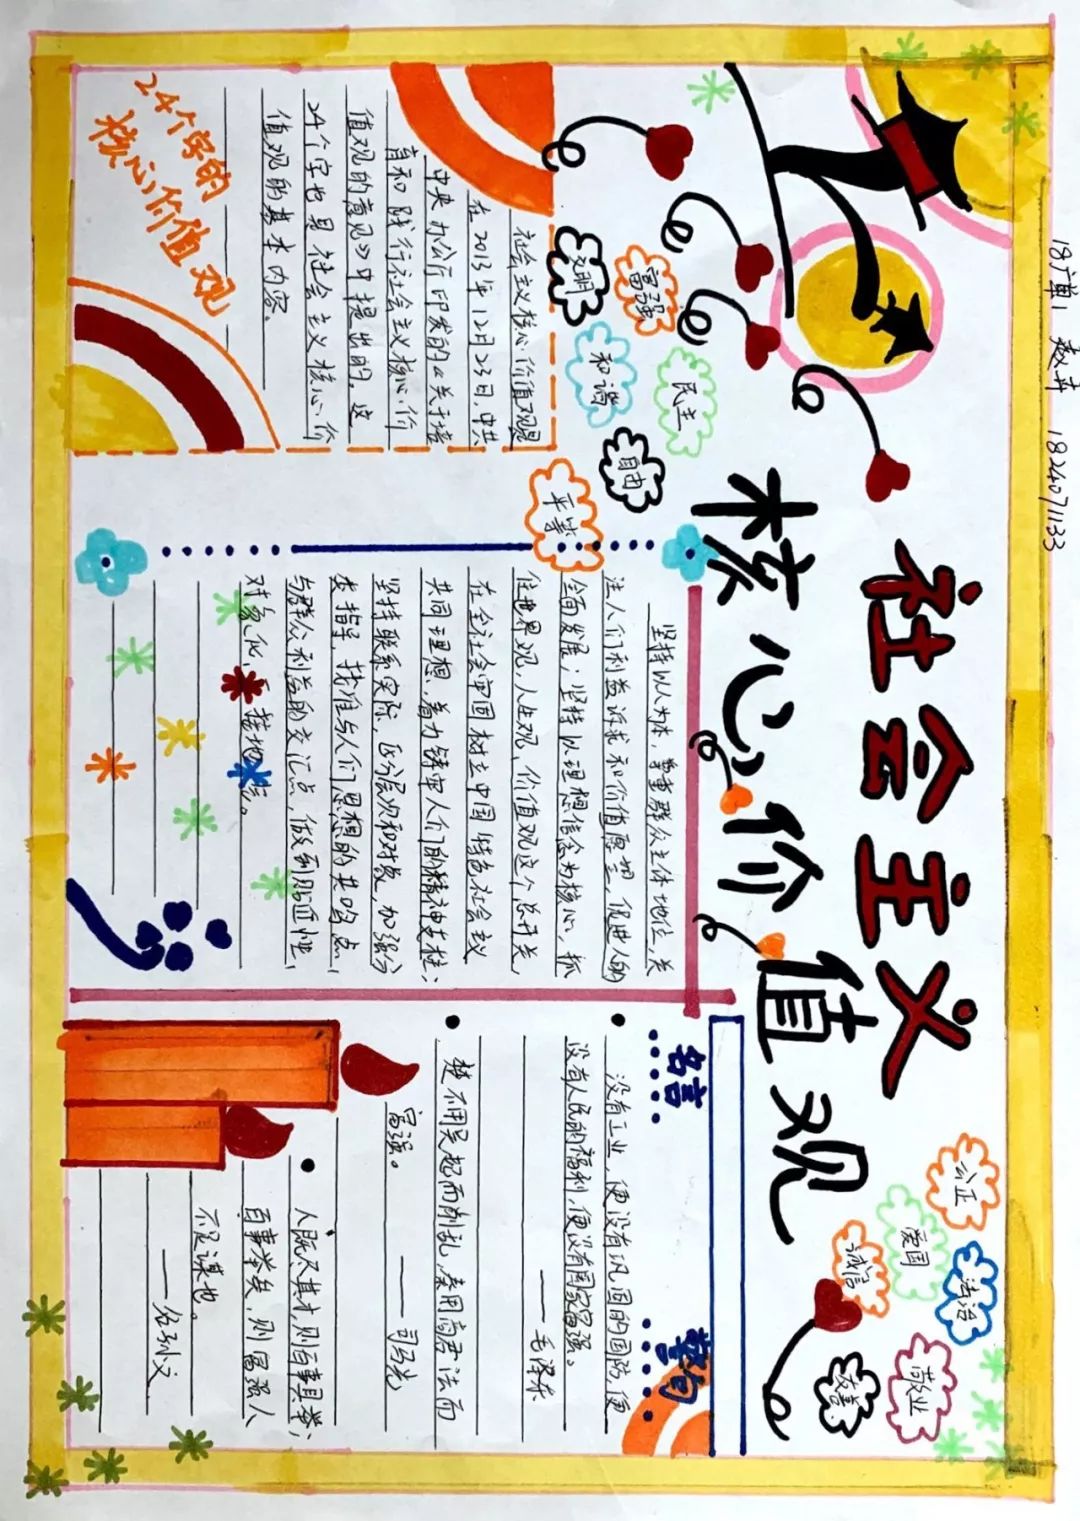 18广单1 赵卉 182407133
社会主义
核心价值观
富强
文明
民主
和谐
自由
平等
公正
爱国
诚信
法治
敬业
友善
社会主义核心价值观是
在2013年12月23日,中共
中央办公厅印发的《关于培
育和践行社会主义核心价
值观的意见》中提出的,这
24个字也是社会主义核心价
值观的基本内容。
24个字的
核心价值观
坚持以人为本,尊重群众主体地位,关
注人们利益诉求和价值愿望,促进人的
全面发展;坚持以理想信念为核心,抓
住世界观,人生观,价值观这个总开关,
在全社会牢固树立中国特色社会主义
共同理想,着力铸牢人们的精神支柱;
坚持联系实际,区分层次和对象,加强分
类指导,找准与人们思想的共鸣点,
与群众利益的交汇点,做到贴近性,
对象化,接地气。
名言
警句
没有工业,便没有巩固的国防,便
没有人民的福利,便没有国家富强。
——毛泽东
楚用吴起而削乱,秦用商君法而
富强。
——司马光
人既尽其才,则百事具举;
百事举矣,则富强人
不足谋也。
——名列文